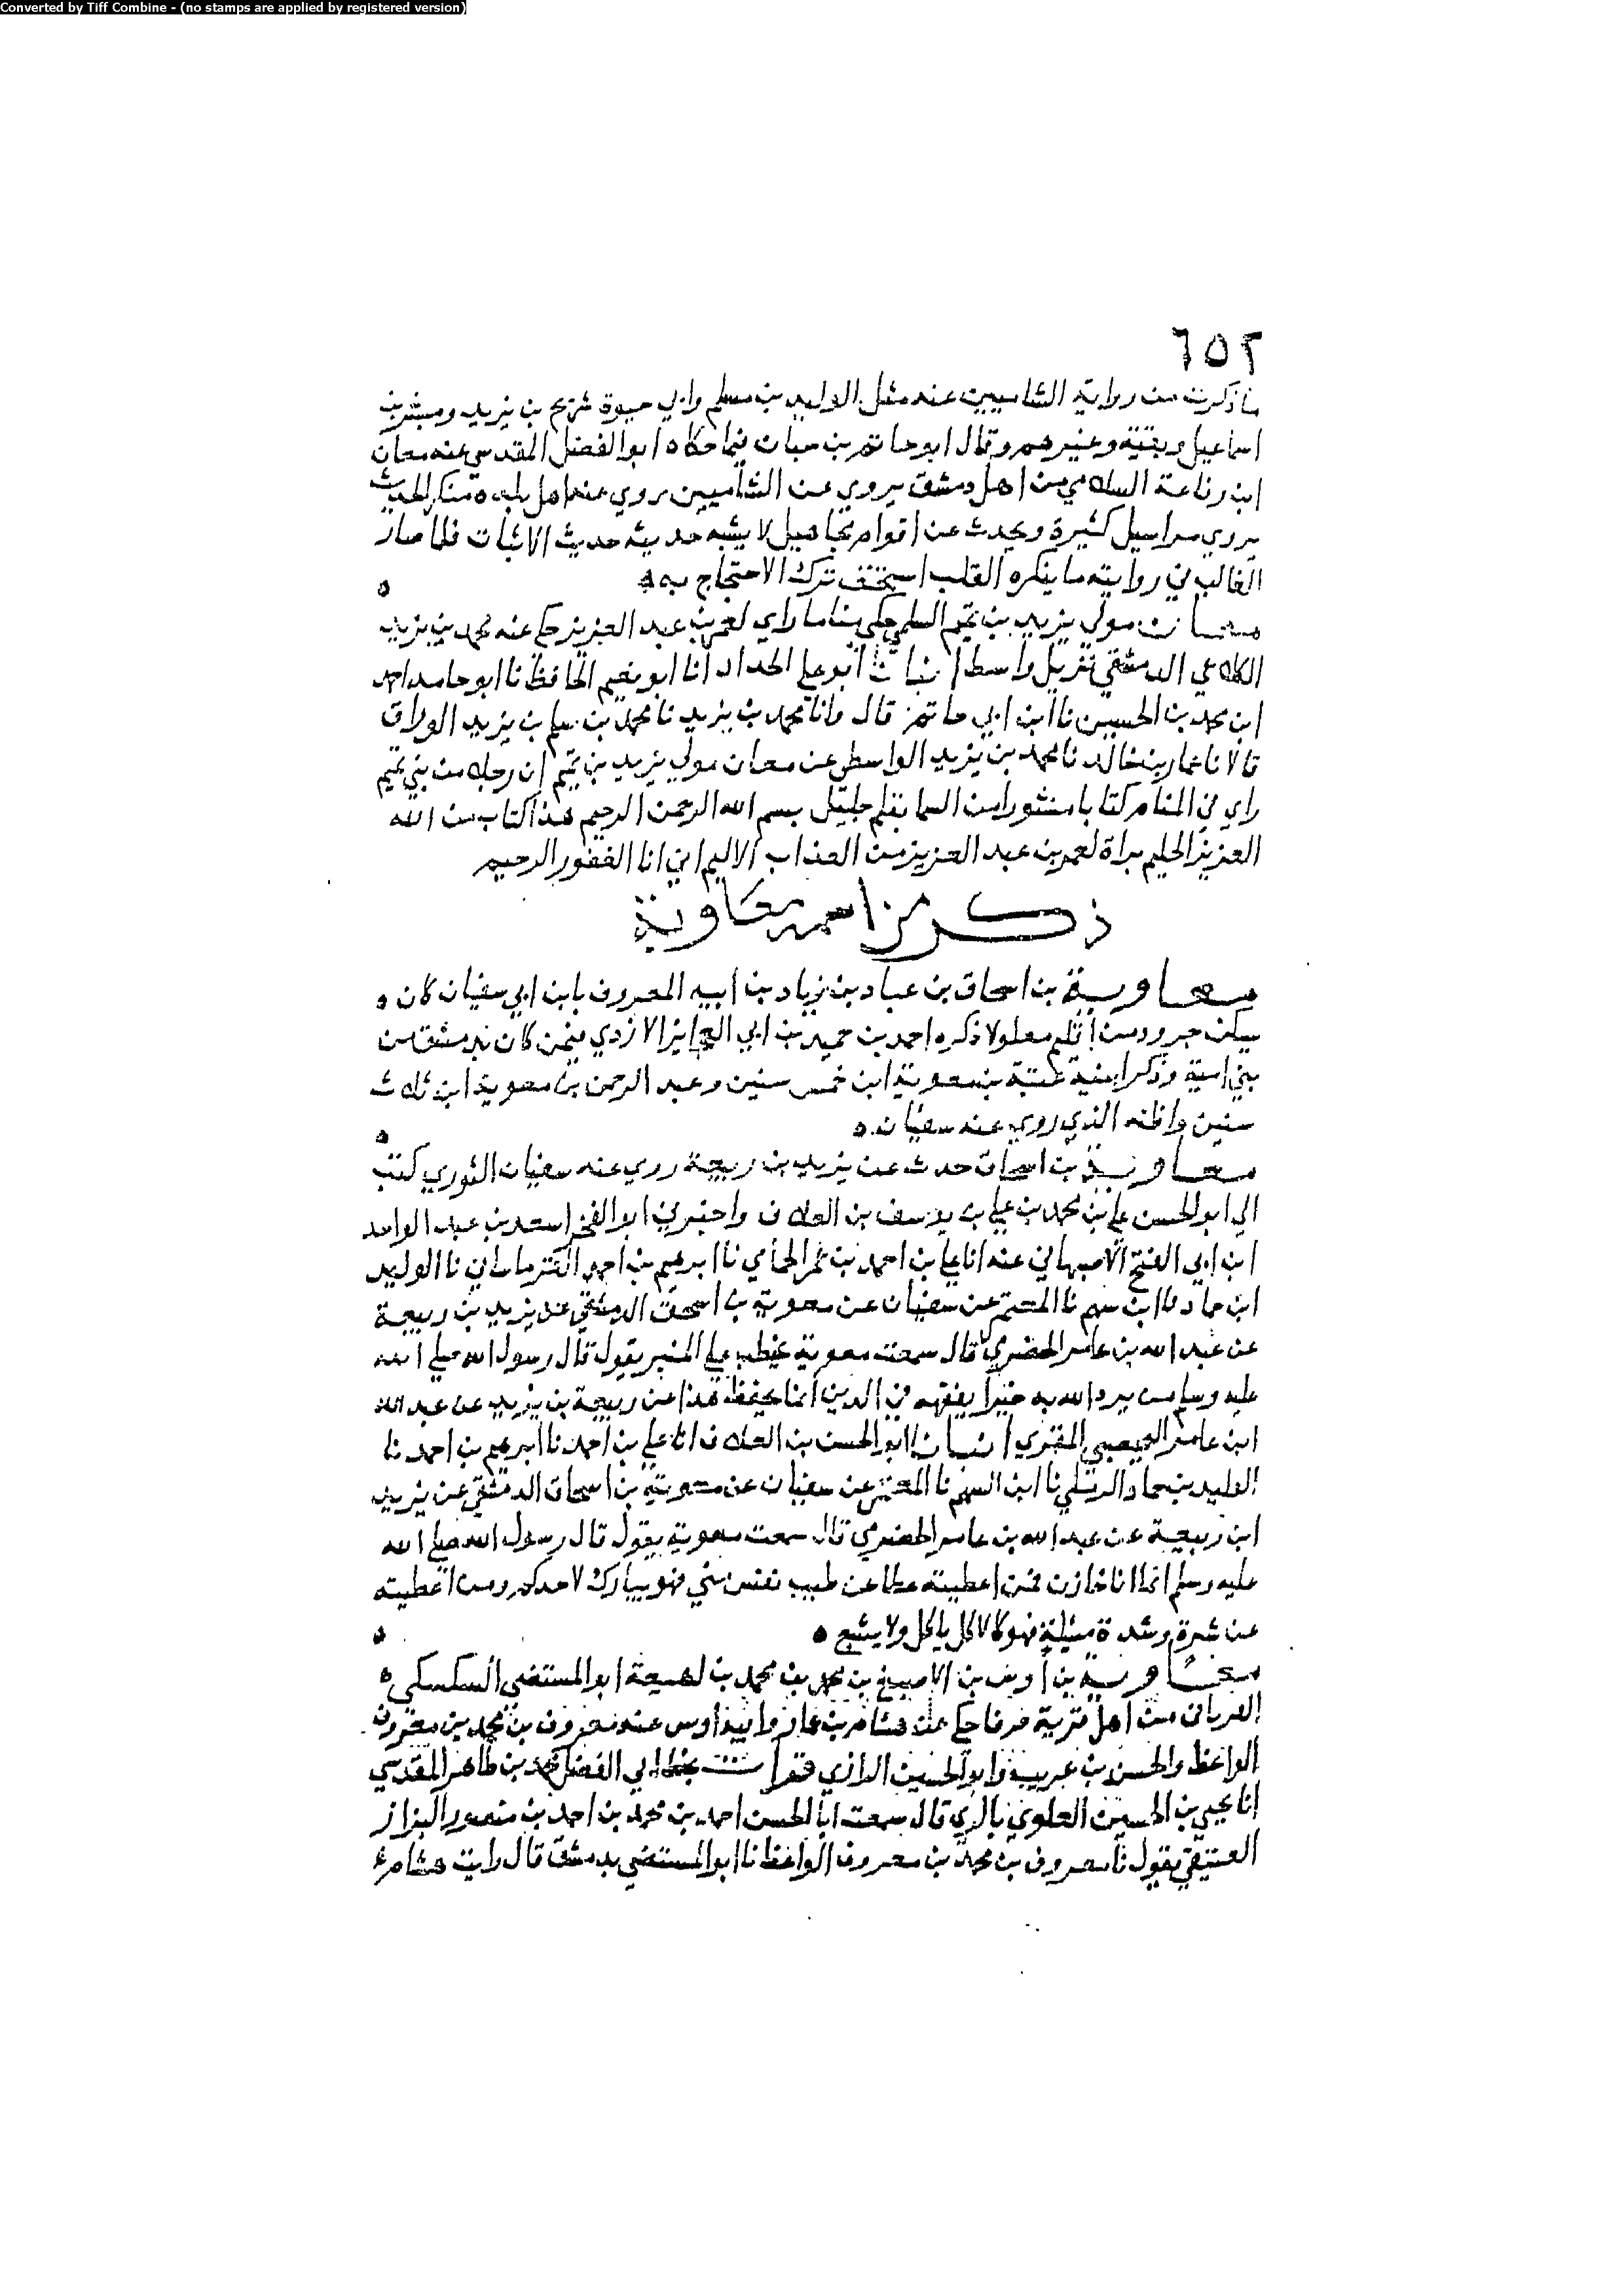 Converted by Tiff Combine - (no stamps are applied by registered version)
٦٥٢
ما ذكرت من رواية الشاميين عنه مثل الوليد بن مسلم وابي حيوة شريح بن يزيد ومبشر بن
اسماعيل وبقية وغيرهم وقال ابو حاتم بن حبان فيما حكاه ابو الفضل المقدسي عنه معان
ابن رفاعة السلامي من اهل دمشق يروي عن الشاميين روي عنه اهل بلده منكر الحديث
يروي مراسيل كثيرة ويحدث عن اقوام مجاهيل لا يشبه حديثه حديث الاثبات فلما صار
الغالب في روايته ما ينكره القلب استحق ترك الاحتجاج به
معان مولي يزيد بن تميم السلمي حكي مناما راي لعمر بن عبد العزيز حكي عنه محمد بن يزيد
الكلاعي الدمشقي نزيل واسط انبانا ابو علي الحداد انا ابو نعيم الحافظ نا ابو حامد احمد
ابن محمد بن الحسين نا ابن ابي حاتم قال وانا محمد بن يزيد نا محمد بن سلم بن يزيد الوراق
قالا نا عمار بن خالد نا محمد بن يزيد الواسطي عن معان مولي يزيد بن تميم ان رجلا من بني تميم
راي في المنام كتابا منشورا من السما بقلم جليل بسم الله الرحمن الرحيم هذا كتاب من الله
العزيز الحليم براة لعمر بن عبد العزيز من العذاب الاليم اني انا الغفور الرحيم
ذكر من اسمه معاوية
معاوية بن اسحاق بن عباد بن زياد بن ابيه المعروف بابن ابي سفيان كان
يسكن جرود من اقليم معلولا ذكره احمد بن حميد بن ابي العجايز الازدي فيمن كان بدمشق من
بني امية وذكر ابنيه عتبة بن معوية ابن خمس سنين وعبد الرحمن بن معوية ابن ثلاث
سنين واظنه الذي روي عنه سفيان
معاوية بن اسحاق حدث عن يزيد بن ربيعة روي عنه سفيان الثوري كتب
الي ابو الحسن علي بن محمد بن علي بن يوسف بن العلاف واخبرني ابو الفخر اسعد بن عبد الواحد
ابن ابي الفتح الاصبهاني عنه انا علي بن احمد بن عمر الحمامي نا ابرهيم بن احمد القرماساني نا الوليد
ابن حماد نا ابن سهم نا المعتمر عن سفيان عن معوية بن اسحق الدمشقي عن يزيد بن ربيعة
عن عبد الله بن عامر الحضرمي قال سمعت معوية يخطب علي المنبر يقول قال رسول الله صلي الله
عليه وسلم من يرد الله به خيرا يفقهه في الدين انما يحفظ هذا عن ربيعة بن يزيد عن عبد الله
ابن عامر اليحصبي المقري انبانا ابو الحسن بن العلاف انا علي بن احمد نا ابرهيم بن احمد نا
الوليد بن حماد الرملي نا ابن السهم نا المعتمر عن سفيان عن معوية بن اسحاق الدمشقي عن يزيد
ابن ربيعة عن عبد الله بن عامر الحضرمي قال سمعت معوية يقول قال رسول الله صلي الله
عليه وسلم انما انا خازن فمن اعطيته عطا عن طيب نفس مني فهو يبارك لاحدكم ومن اعطيته
عن شره وشدة مسئلة فهو كالاكل ياكل ولا يشبع
معاوية بن اوس بن الاصبغ بن محمد بن محمد بن لهيعة ابو المستضي السكسكي
من اهل قرية حرفا حكي عن هشام بن عمار عنه معروف بن محمد بن معروف
الواعظ والحسن بن غريب وابو الحسين الرازي قرات بخط ابي الفضل محمد بن طاهر المقدسي
انا يحيي بن الحسين العلوي بالري قال سمعت ابا الحسن احمد بن محمد بن احمد بن منصور البزاز
العتيقي يقول نا معروف بن محمد بن معروف الواعظ نا ابو المستضي بدمشق قال رايت هشام